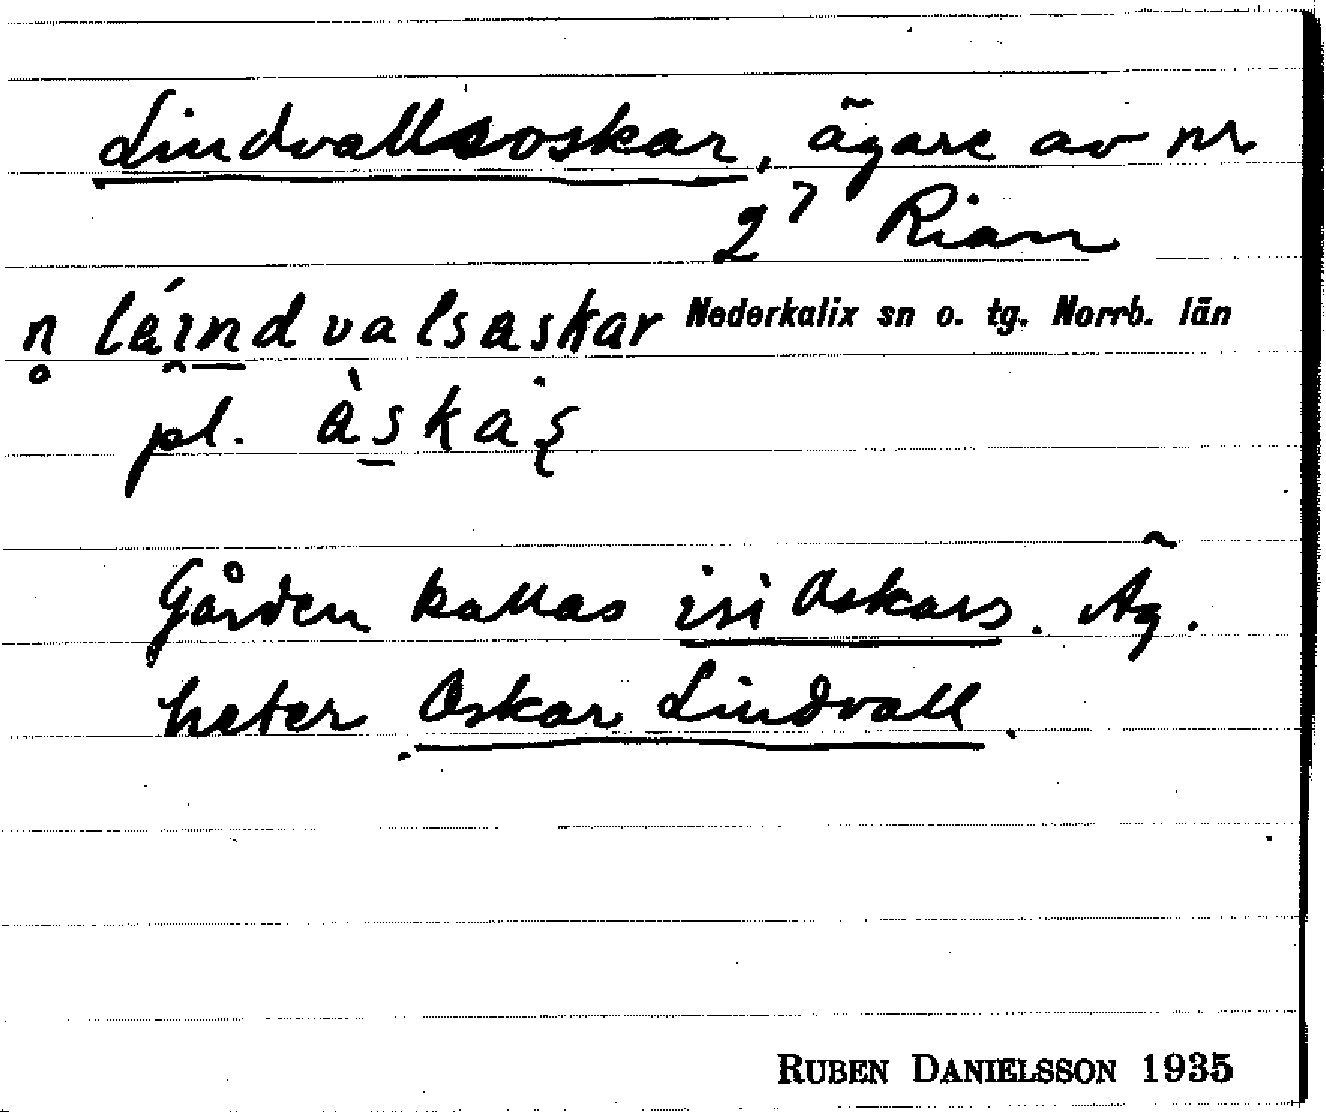 Lindvallsoskar, ägare av nr
2⁷ Rian
n̥ láɪndvalsaskar Nederkalix sn o. tg. Norrb. län
pl. àskaʂ
Gården kallas isi Oskars. Äg.
heter Oskar Lindvall.
RUBEN DANIELSSON 1935